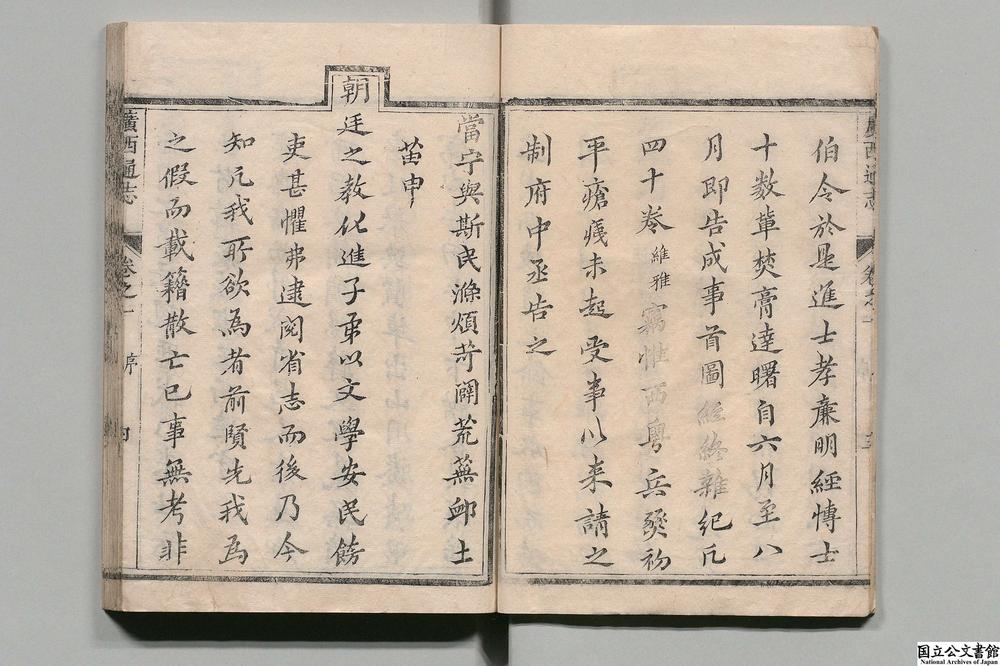 伯令於是進士孝廉明經博士
十數輩焚膏達曙自六月至八
月即告成事首圖經終雜紀凡
四十卷維雅竊惟西粵兵燹初
平瘡痍未起受事以来請之
制府中丞告之
當宁與斯民滌煩苛闢荒蕪卹土
苗申
朝廷之教化進子弟以文學安民飭
吏甚懼弗逮閱省志而後乃今
知凡我所欲為者前賢先我為
之假而載籍散亡已事無考非
廣西通志 卷之一 序
国立公文書館
National Archives of Japan